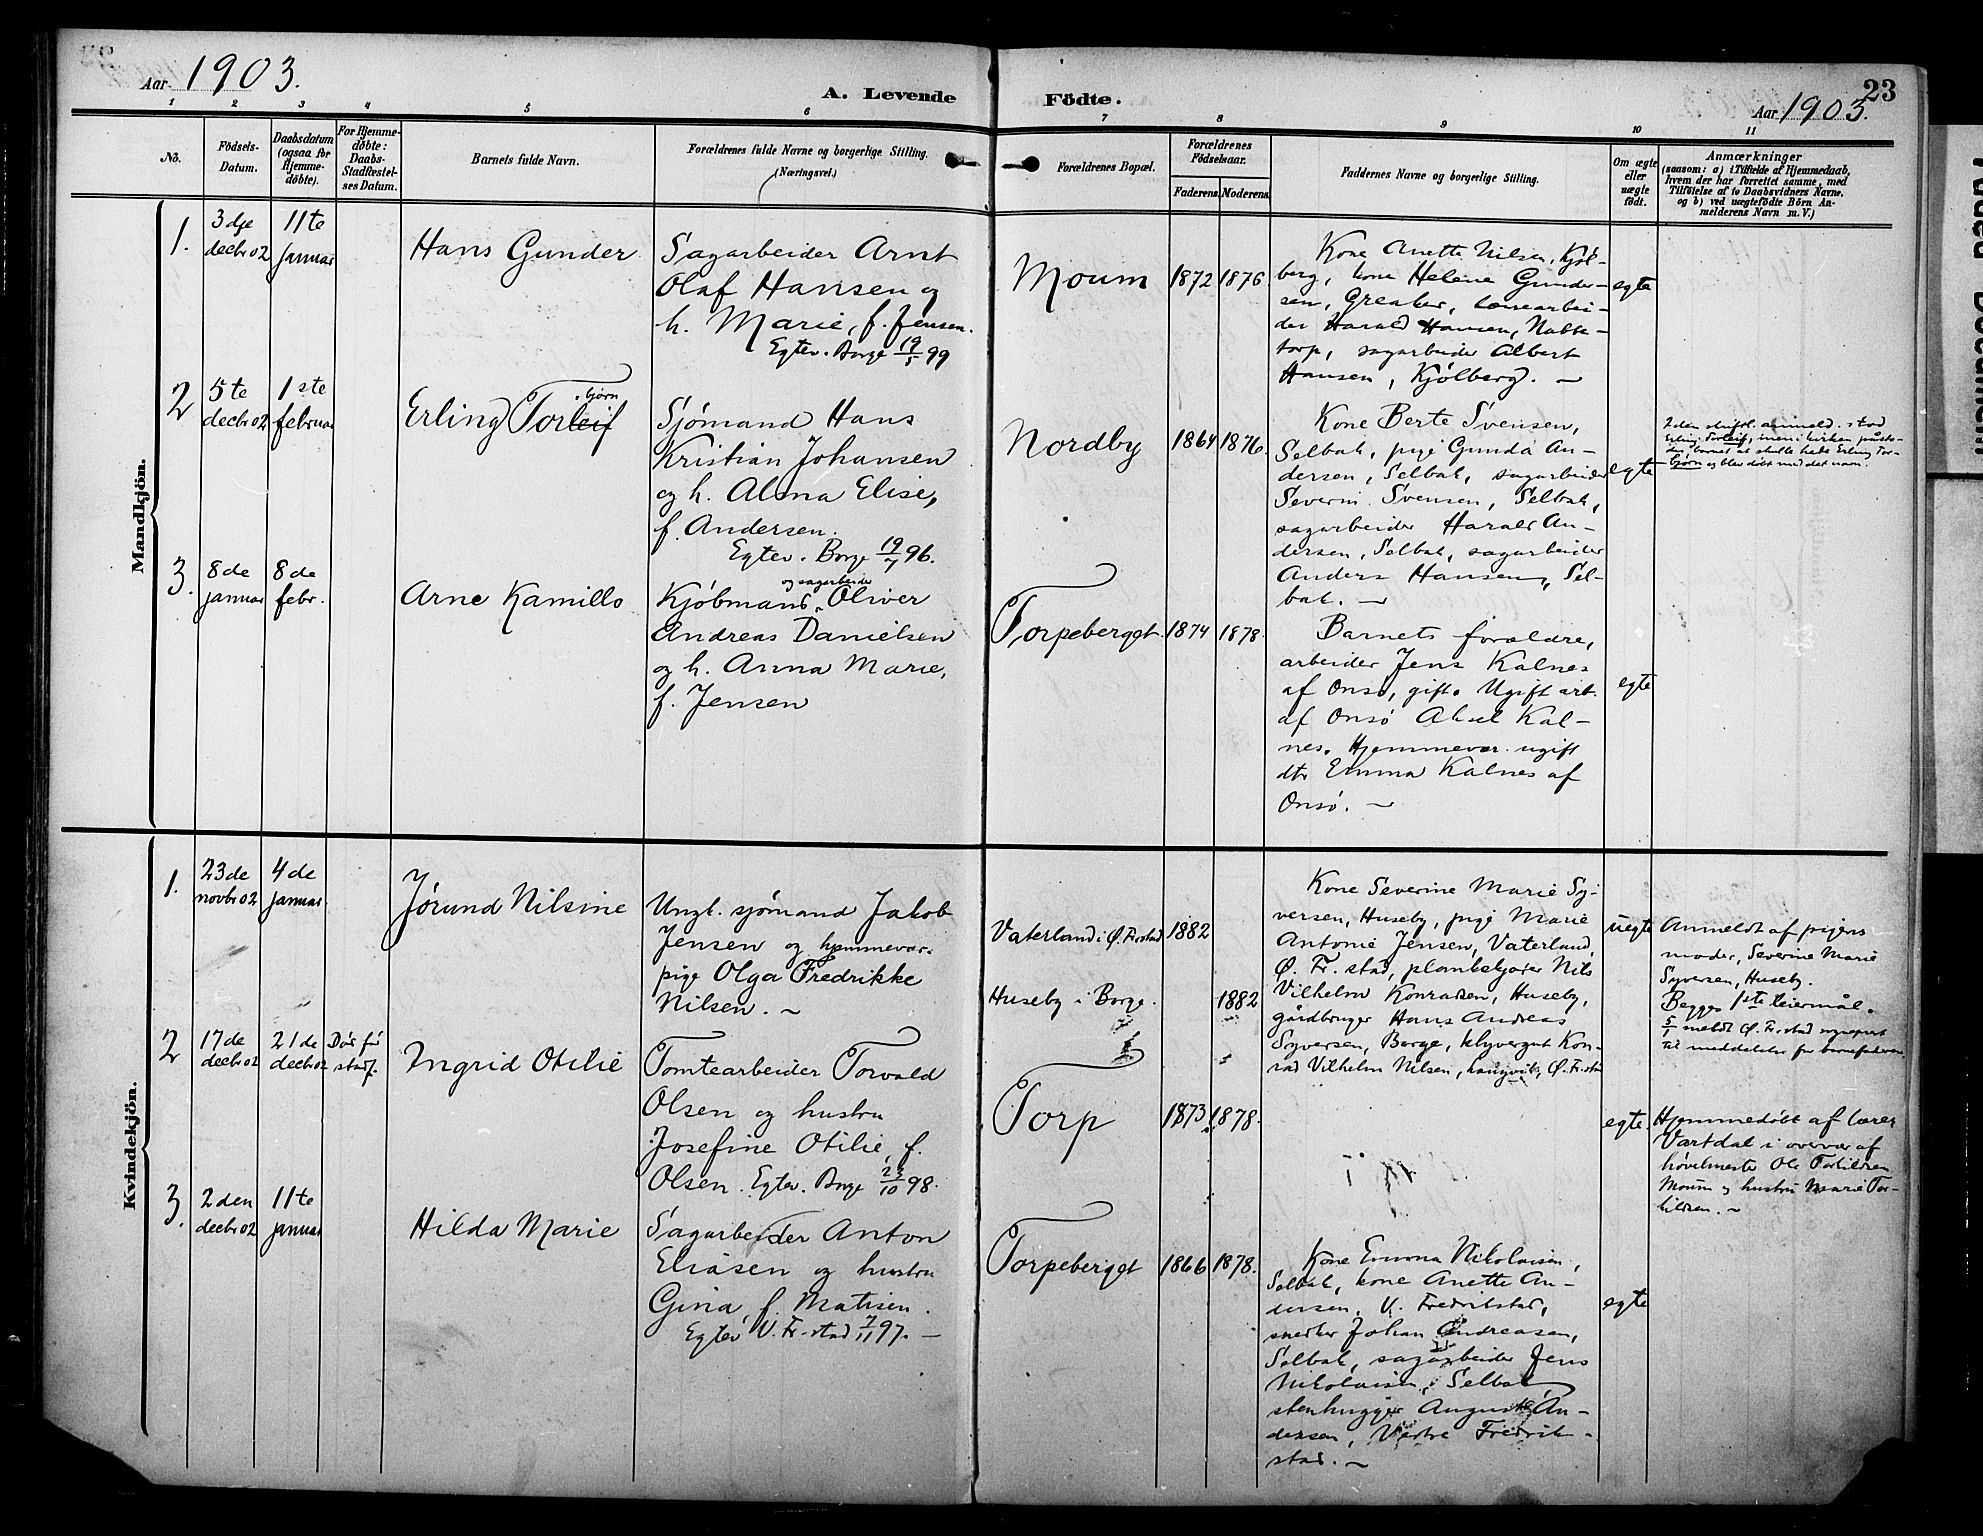 Aar 1903.
A. Levende Födte.
23
Aar 1903.
1 2 3 4 5 6 7 8 9 10 11
No.
Födsels-
Datum.
Daabsdatum
(ogsaa for
Hjemme-
döbte).
For Hjemme-
döbte:
Daabs-
Stadfæstel-
ses Datum.
Barnets fulde Navn.
Forældrenes fulde Navne og borgerlige Stilling.
(Næringsvei.)
Forældrenes Bopæl.
Forældrenes
Födselsaar.
Faderens. Moderens.
Faddernes Navne og borgerlige Stilling.
Om ægte
eller
uægte
födt.
Anmærkninger
(saasom: a) i Tilfælde af Hjemmedaab,
hvem der har forrettet samme, med
Tilföielse af to Daabsvidners Navne,
og b) ved uægtefödte Börn An-
melderens Navn m. V.)
Mandkjön.
1.
3dje
decbr 02
11te
januar
Hans Gunder
Sagarbeider Arnt
Olaf Hansen og
h. Marie, f. Jensen.
Egtev. Borge 19/5 99
Moum
1872
1876
Kone Anette Nilsen, Kjöl-
berg, kone Helene Gunder-
sen, Greaker, lensearbei-
der Harald Hansen, Nabbe-
torp, sagarbeider Albert
Hansen, Kjölberg. —
egte
2
5te
decbr 02
1ste
februar
Erling Torleif
bjørn
Sjömand Hans
Kristian Johansen
og h. Alma Elise,
f. Andersen.
Egtev. Borge 19/7 96.
Nordby
1864
1876.
Kone Berte Svensen,
Selbak, pige Gunda An-
dersen, Selbak, sagarbeider
Severin Svensen, Selbak,
sagarbeider Harald An-
dersen, Selbak, sagarbeider
Anders Hansen, Sel-
bak. —
egte
I den skriftl. anmeld. stod
Erling Torleif, men i kirken påsto-
des, barnet at skulle hede Erling Tor-
bjørn og blev döbt med det navn.
3.
8de
januar
8de
febr.
Arne Kamillo
og sagarbeide
Kjöbmand Oliver
Andreas Danielsen
og h. Anna Marie,
f. Jensen
Torpeberget
1874
1878.
Barnets forældre,
arbeider Jens Kalnes
af Onsö, gift. Ugift arb.
af Onsö Aksel Kal-
nes. Hjemmevær. ugift
dtr Emma Kalnes af
Onsö. —
egte
Kvindekjön.
1.
23de
novbr 02
4de
januar
Jørund Nilsine
Ungk. sjömand Jakob
Jensen og hjemmevær.
pige Olga Fredrikke
Nilsen. —
Vaterland i Ø. Fr.stad
1882
Huseby i Borge.
1882
Kone Severine Marie Sy-
versen, Huseby, pige Marie
Antonie Jensen, Vaterland,
Ø. Fr.stad, plankekjører Nils
Vilhelm Konradsen, Huseby,
gårdbruger Hans Andreas
Syversen, Borge, klyvergut Kon-
rad Vilhelm Nilsen, Ø. Fr.stad
uegte
Anmeldt af pigens
moder, Severine Marie
Syversen, Huseby.
Begges 1ste leiermål.
5/1 meldt Ø. Fr.stad sognepræst
til meddelelse for barnefaderen
2
17de
decbr 02
21de
decbr 02
Död før
stadf.
Ingrid Otilie
Tomtearbeider Torvald
Olsen og hustru
Josefine Otilie, f.
Olsen. Egtev. Borge 23/10 98.
Torp
1873.
1878.
egte.
Hjemmedöbt af lærer
Vartdal i overvær af
høvelmester Ole Torkildsen
Moum og hustru Marie Tor-
kildsen. —
3.
2den
decbr 02
11te
januar
Hilda Marie
Sagarbeider Anton
Eliasen og hustru
Gina, f. Matisen.
Egtev V. Fr.stad 7/11 97. —
Torpeberget
1866
1878.
Kone Emma Nikolaisen,
Selbak, kone Anette An-
dersen, V. Fredrikstad,
snedker Johan Andreasen,
Selbak, sagarbeider Jens
Nikolaisen, Selbak
stenhugger August An-
dersen, Vestre Fredrik-
stad. —
egte